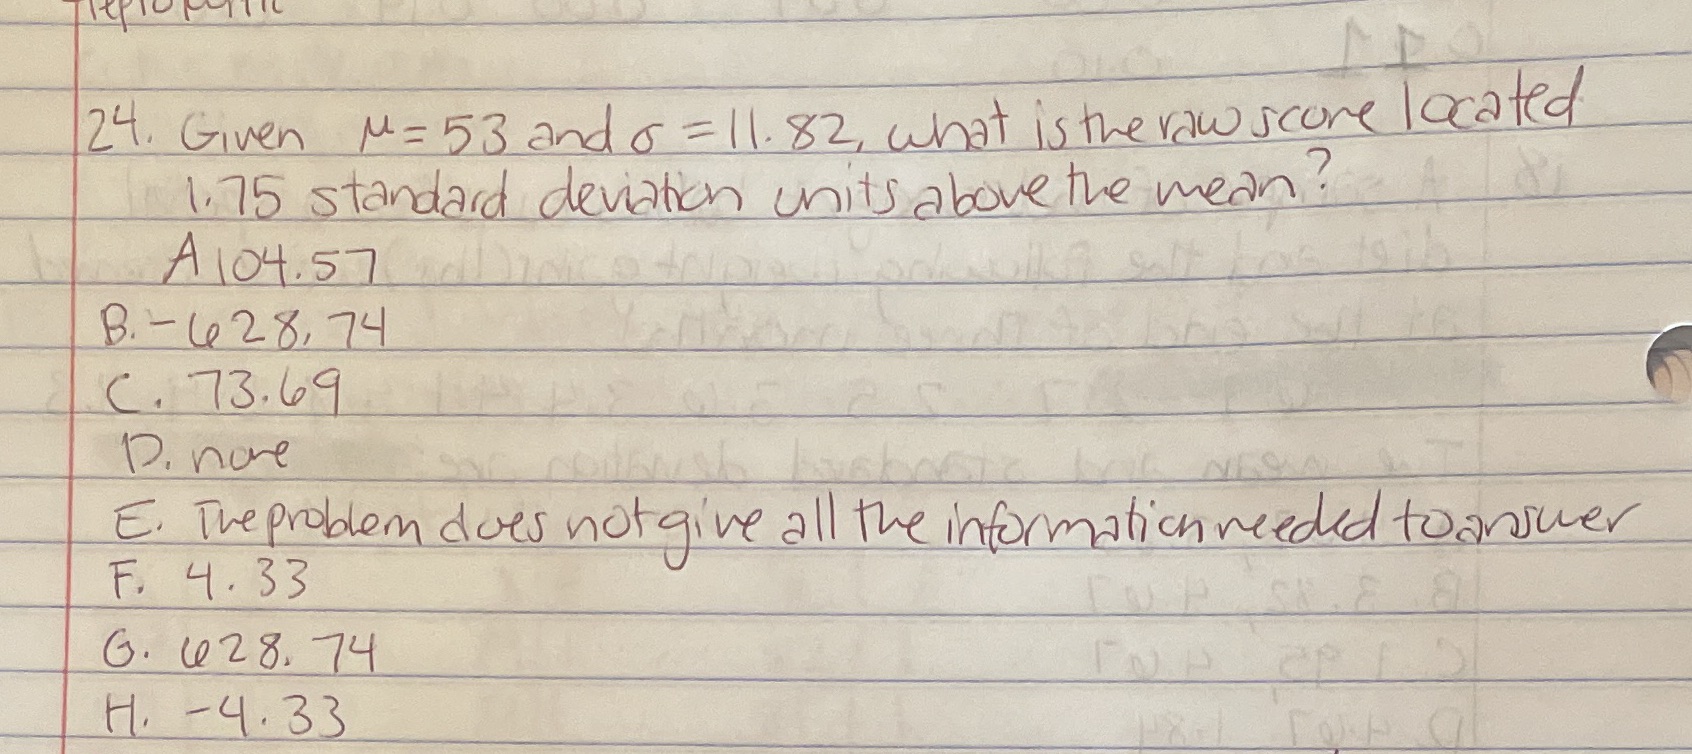 24. Given μ = 53 and σ = 11.82, what is the raw score located
1.75 standard deviation units above the mean?
A 104.57
B. -628.74
C. 73.69
D. none
E. The problem does not give all the information needed to answer
F. 4.33
G. 628.74
H. -4.33